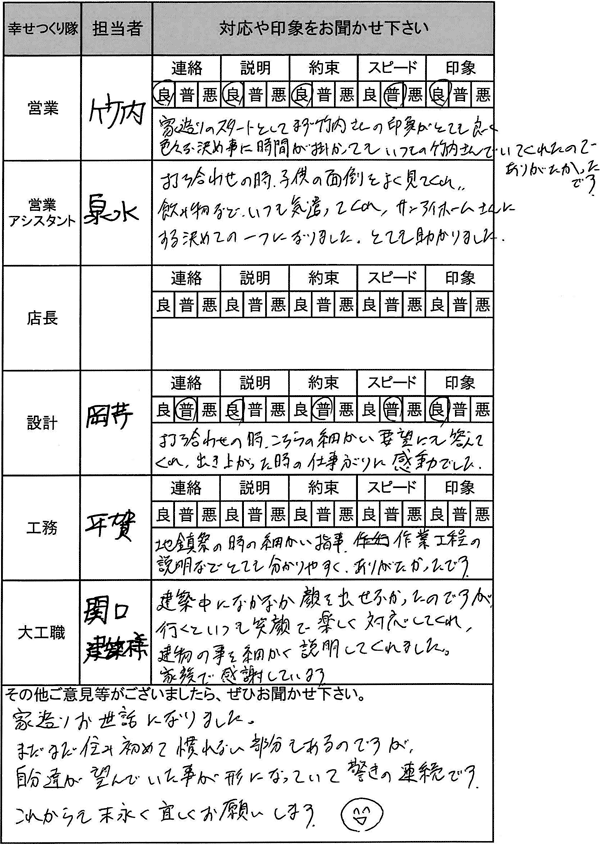 幸せつくり隊 担当者 対応や印象をお聞かせ下さい
営業 竹内
連絡 説明 約束 スピード 印象
良 普 悪 良 普 悪 良 普 悪 良 普 悪 良 普 悪
家造りのスタートとしてまず竹内さんの印象がとても良く
色々な決め事に時間が掛かってもいつもの竹内さんでいてくれたので
ありがたかった
です
営業
アシスタント
泉水
打ち合わせの時、子供の面倒をよく見てくれ、
飲み物など、いつも気遣ってくれ、サンアイホームさんに
する決めての一つになりました。とても助かりました。
店長
連絡 説明 約束 スピード 印象
良 普 悪 良 普 悪 良 普 悪 良 普 悪 良 普 悪
設計 岡芹
連絡 説明 約束 スピード 印象
良 普 悪 良 普 悪 良 普 悪 良 普 悪 良 普 悪
打ち合わせの時、こちらの細かい要望にも答えて
くれ、出き上がった時の仕事がりに感動でした。
工務 平賀
連絡 説明 約束 スピード 印象
良 普 悪 良 普 悪 良 普 悪 良 普 悪 良 普 悪
地鎮祭の時の細かい指事、作業工程の
説明などとても分かりやすく、ありがたかったです
大工職
関口
建築様
建築中になかなか顔を出せなかったのですが、
行くといつも笑顔で楽しく対応してくれ、
建物の事を細かく説明してくれました。
家族で感謝しています
その他ご意見等がございましたら、ぜひお聞かせ下さい。
家造りお世話になりました。
まだまだ住み初めて慣れない部分もあるのですが、
自分達が望んでいた事が形になっていて驚きの連続です
これからも末永く宜しくお願いします